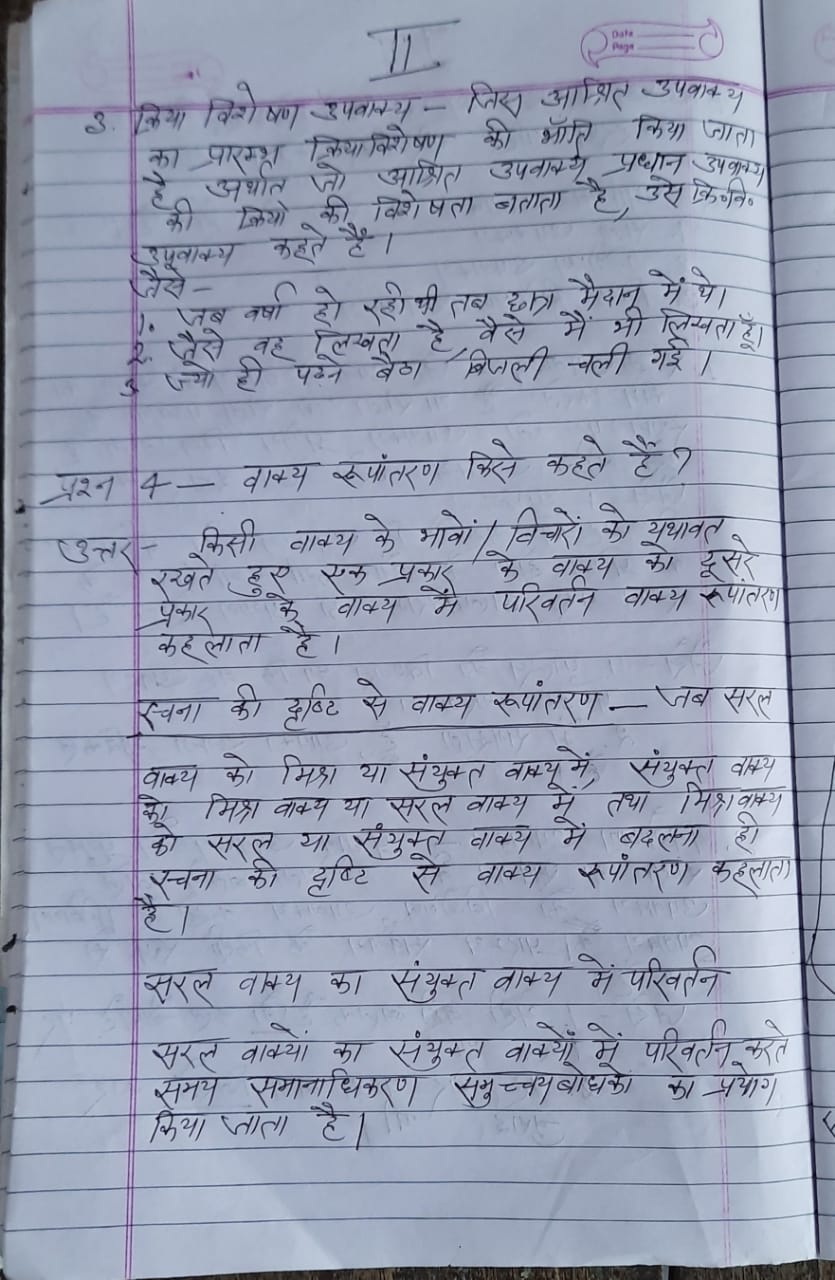 II
Date
Page
3. क्रिया विशेषण उपवाक्य – जिस आश्रित उपवाक्य
का प्रारम्भ क्रियाविशेषण की भाँति किया जाता
है अर्थात जो आश्रित उपवाक्य प्रधान उपवाक्य
की क्रिया की विशेषता बताता है, उसे क्रि०वि०
उपवाक्य कहते हैं।
जैसे–
1. जब वर्षा हो रही थी तब छात्र मैदान में थे।
2. जैसे वह लिखता है, वैसे मैं भी लिखता हूँ।
3 ज्यो ही पढ़ने बैठा बिजली चली गई।
प्रश्न 4 – वाक्य रूपांतरण किसे कहते हैं?
उत्तर – किसी वाक्य के भावों / विचारों को यथावत
रखते हुए एक प्रकार के वाक्य को दूसरे
प्रकार के वाक्य में परिवर्तन वाक्य रूपांतरण
कहलाता है।
रचना की दृष्टि से वाक्य रूपांतरण – जब सरल
वाक्य को मिश्र या संयुक्त वाक्य में, संयुक्त वाक्य
को मिश्र वाक्य या सरल वाक्य में तथा मिश्र वाक्य
को सरल या संयुक्त वाक्य में बदलना ही
रचना की दृष्टि से वाक्य रूपांतरण कहलाता
है।
सरल वाक्य का संयुक्त वाक्य में परिवर्तन
सरल वाक्यों का संयुक्त वाक्यों में परिवर्तन करते
समय समानाधिकरण समुच्चयबोधको का प्रयोग
किया जाता है।